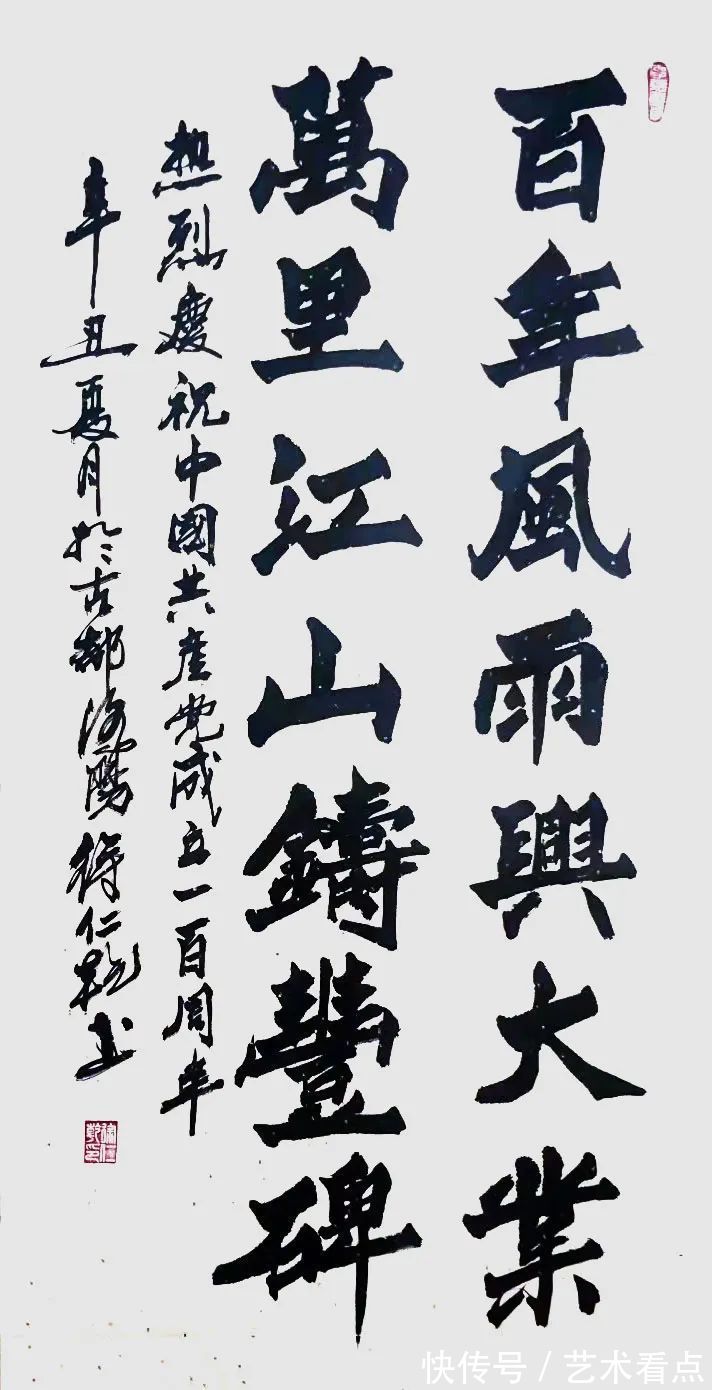 百年風雨興大業
萬里江山鑄豐碑
热烈慶祝中國共產党成立一百周年
辛丑夏月於古都洛陽徐仁乾书
快传号/艺术看点